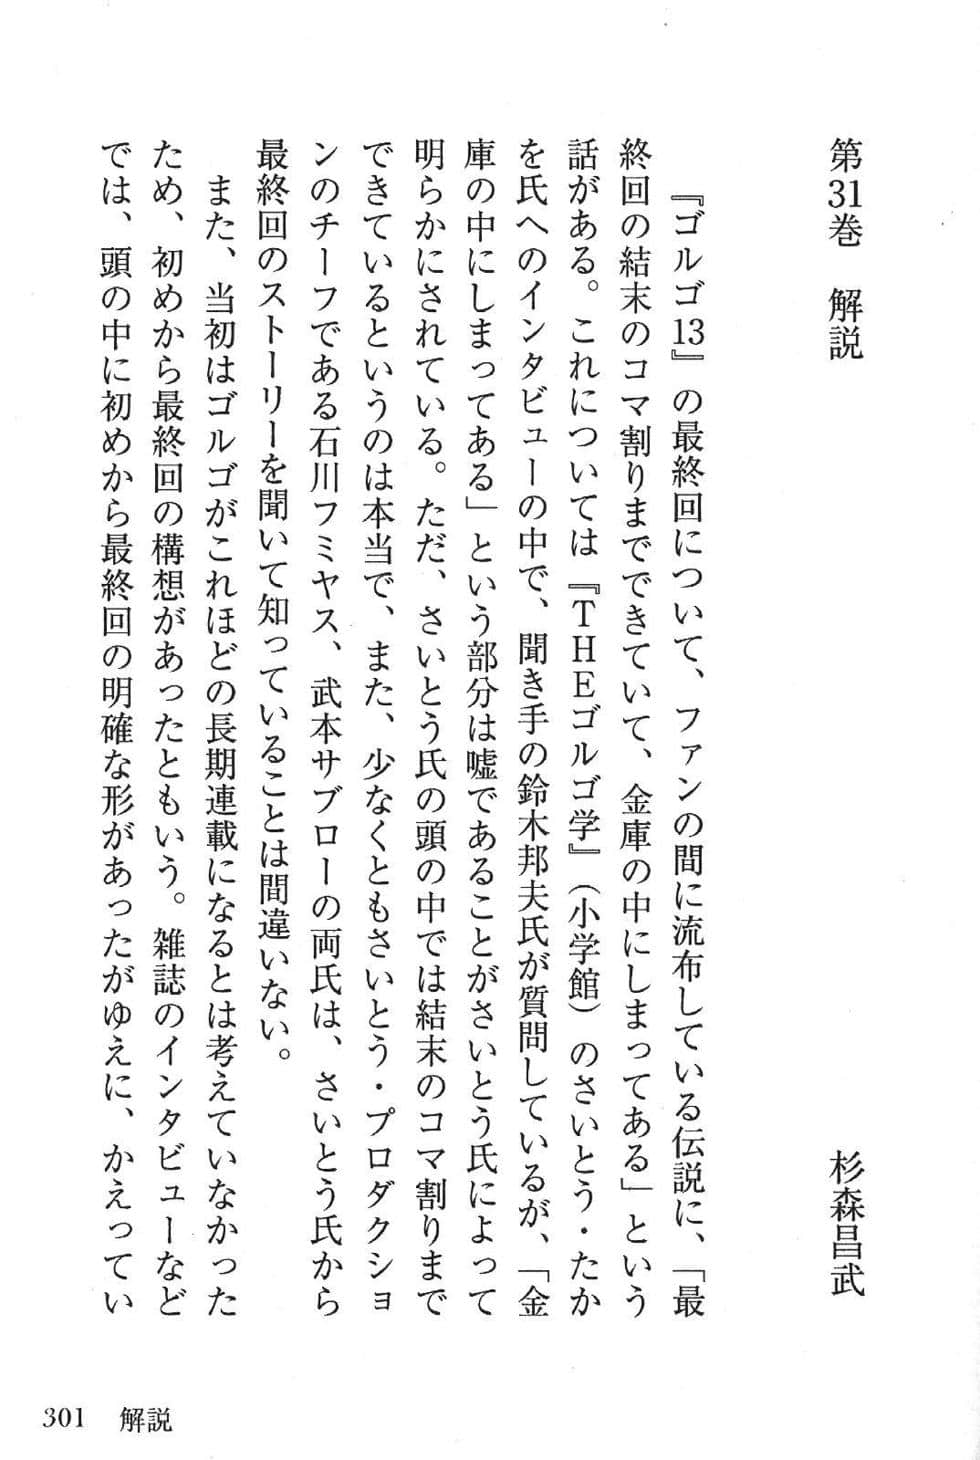 第31巻 解説
杉森昌武
『ゴルゴ13』の最終回について、ファンの間に流布している伝説に、「最
終回の結末のコマ割りまでできていて、金庫の中にしまってある」という
話がある。これについては『THEゴルゴ学』（小学館）のさいとう・たか
を氏へのインタビューの中で、聞き手の鈴木邦夫氏が質問しているが、「金
庫の中にしまってある」という部分は嘘であることがさいとう氏によって
明らかにされている。ただ、さいとう氏の頭の中では結末のコマ割りまで
できているというのは本当で、また、少なくともさいとう・プロダクショ
ンのチーフである石川フミヤス、武本サブローの両氏は、さいとう氏から
最終回のストーリーを聞いて知っていることは間違いない。
また、当初はゴルゴがこれほどの長期連載になるとは考えていなかった
ため、初めから最終回の構想があったともいう。雑誌のインタビューなど
では、頭の中に初めから最終回の明確な形があったがゆえに、かえってい
301 解説